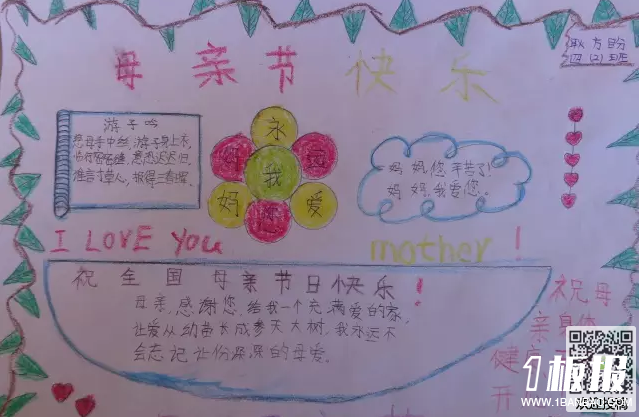 母亲节快乐
四(2)班
游子吟
慈母手中线,游子身上衣,
临行密密缝,意恐迟迟归,
谁言寸草心,报得三春晖。
永
我
妈
爱
妈妈,您辛苦了!
妈妈,我爱您。
I LOVE You mother!
祝全国母亲节日快乐!
母亲,感谢您,给我一个充满爱的家,
让爱从幼苗长成参天大树,我永远不
会忘记让份深深的母爱。
祝母
亲身体
健康
开
1板报
WWW.1BANBAO.COM
欢迎投稿